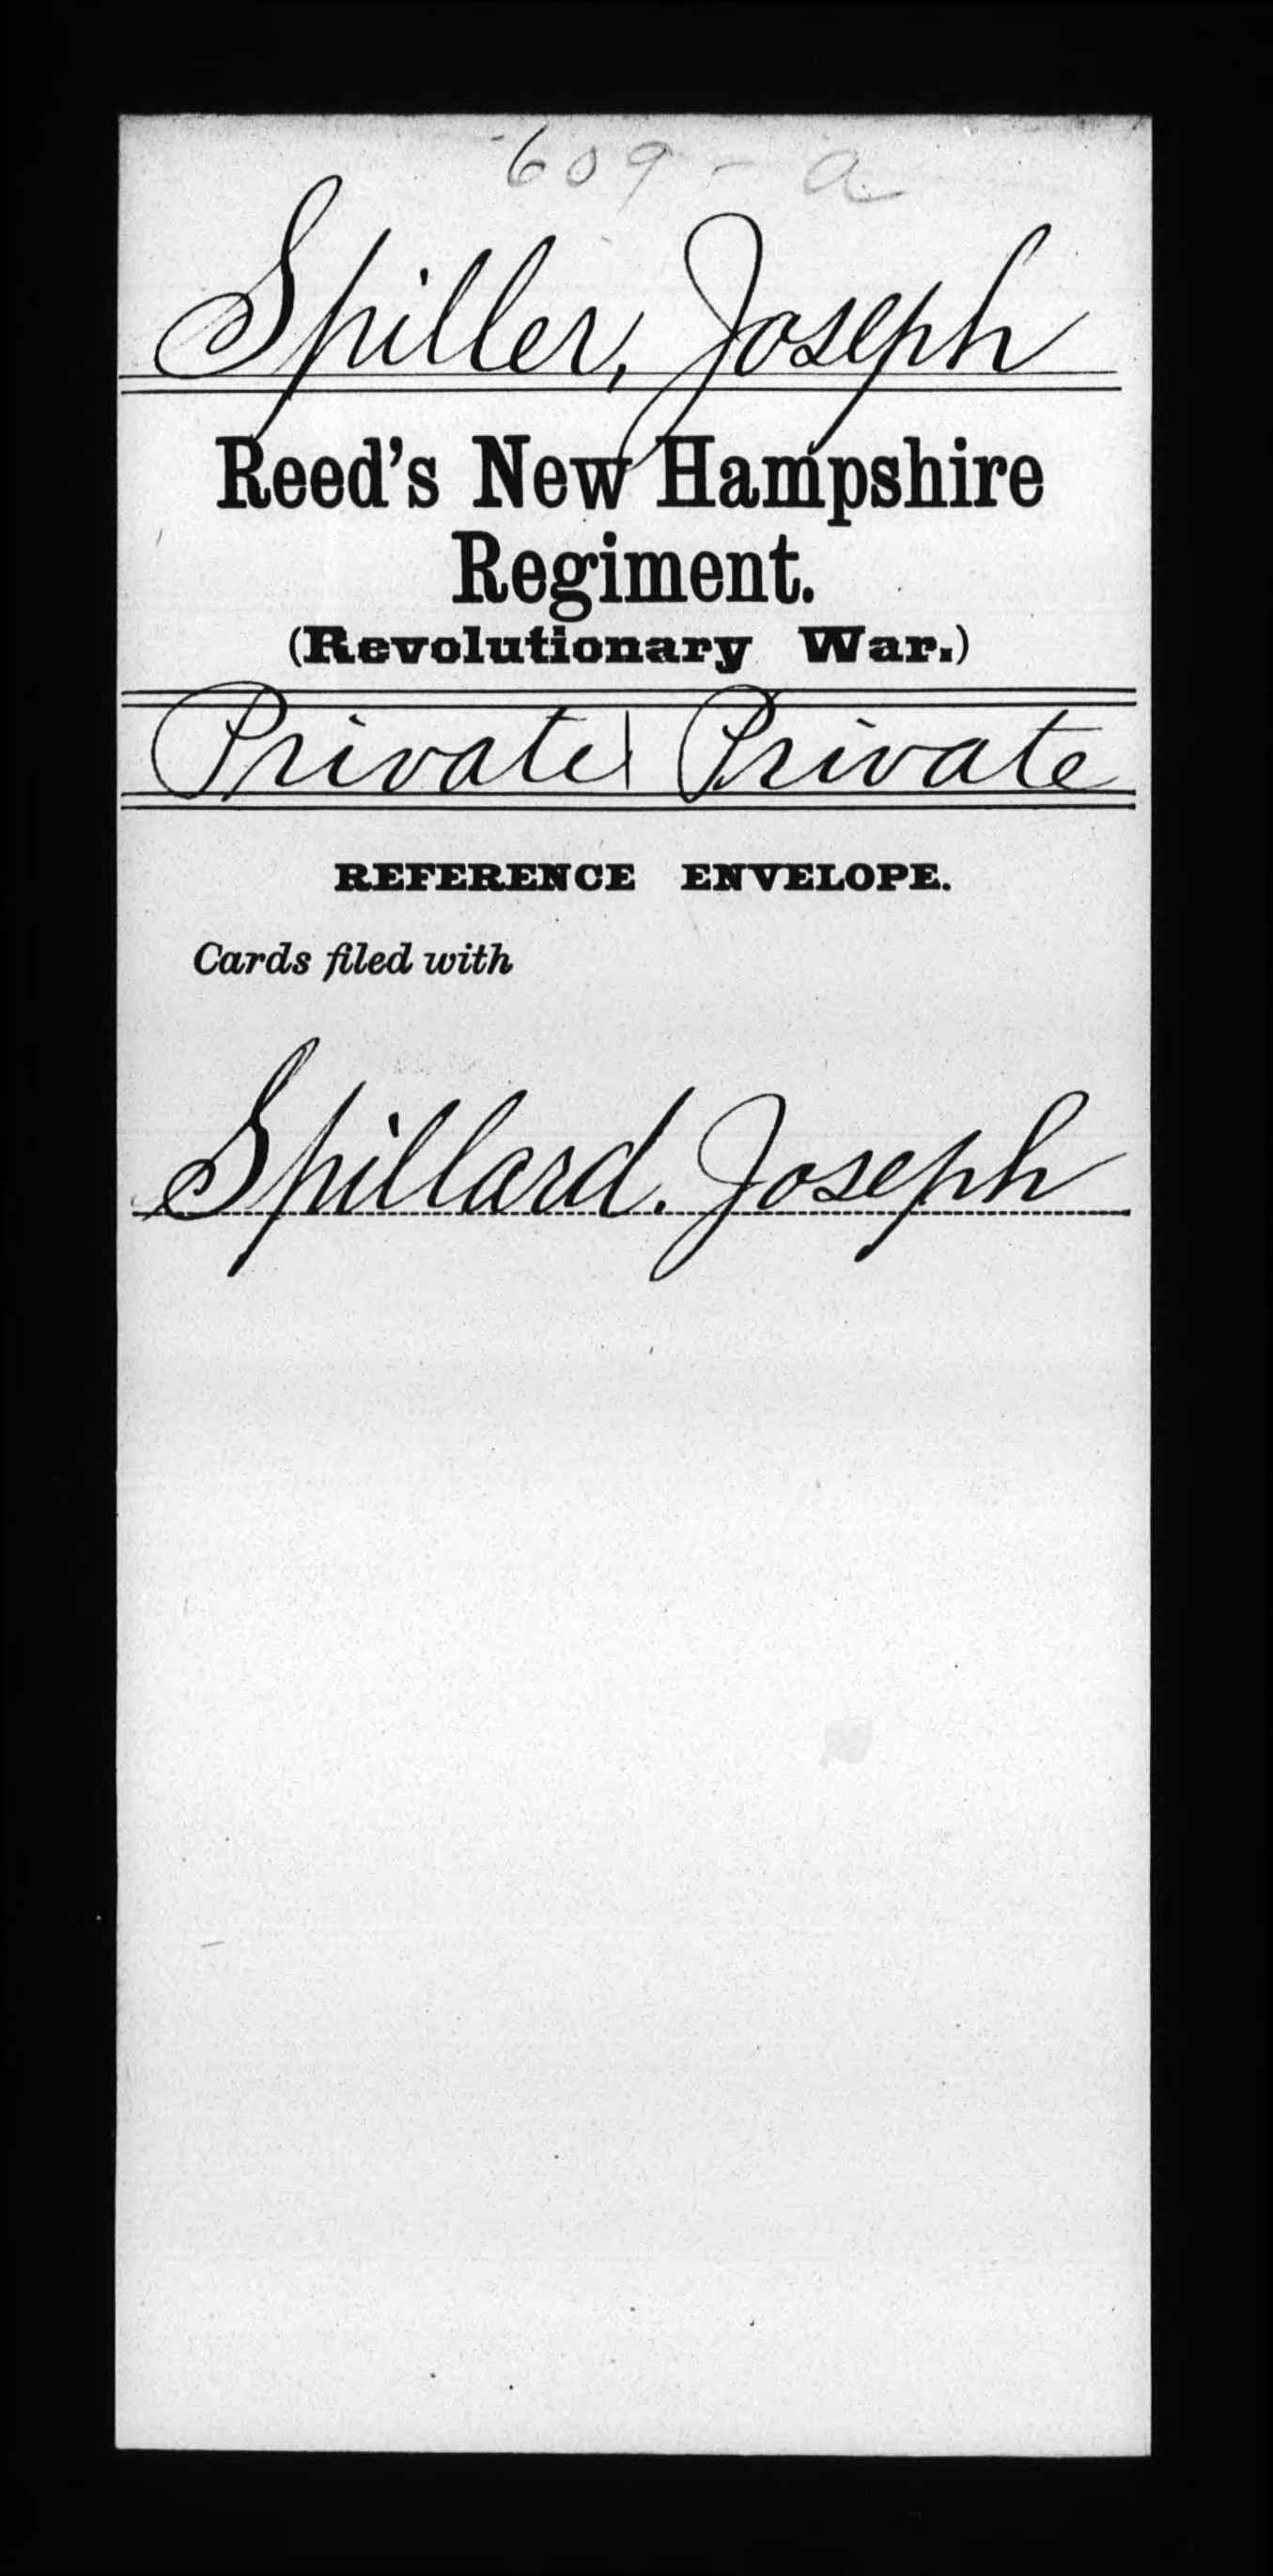 609 - a
Spiller, Joseph
Reed's New Hampshire
Regiment.
(Revolutionary War.)
Private | Private
REFERENCE ENVELOPE.
Cards filed with
Spillard. Joseph